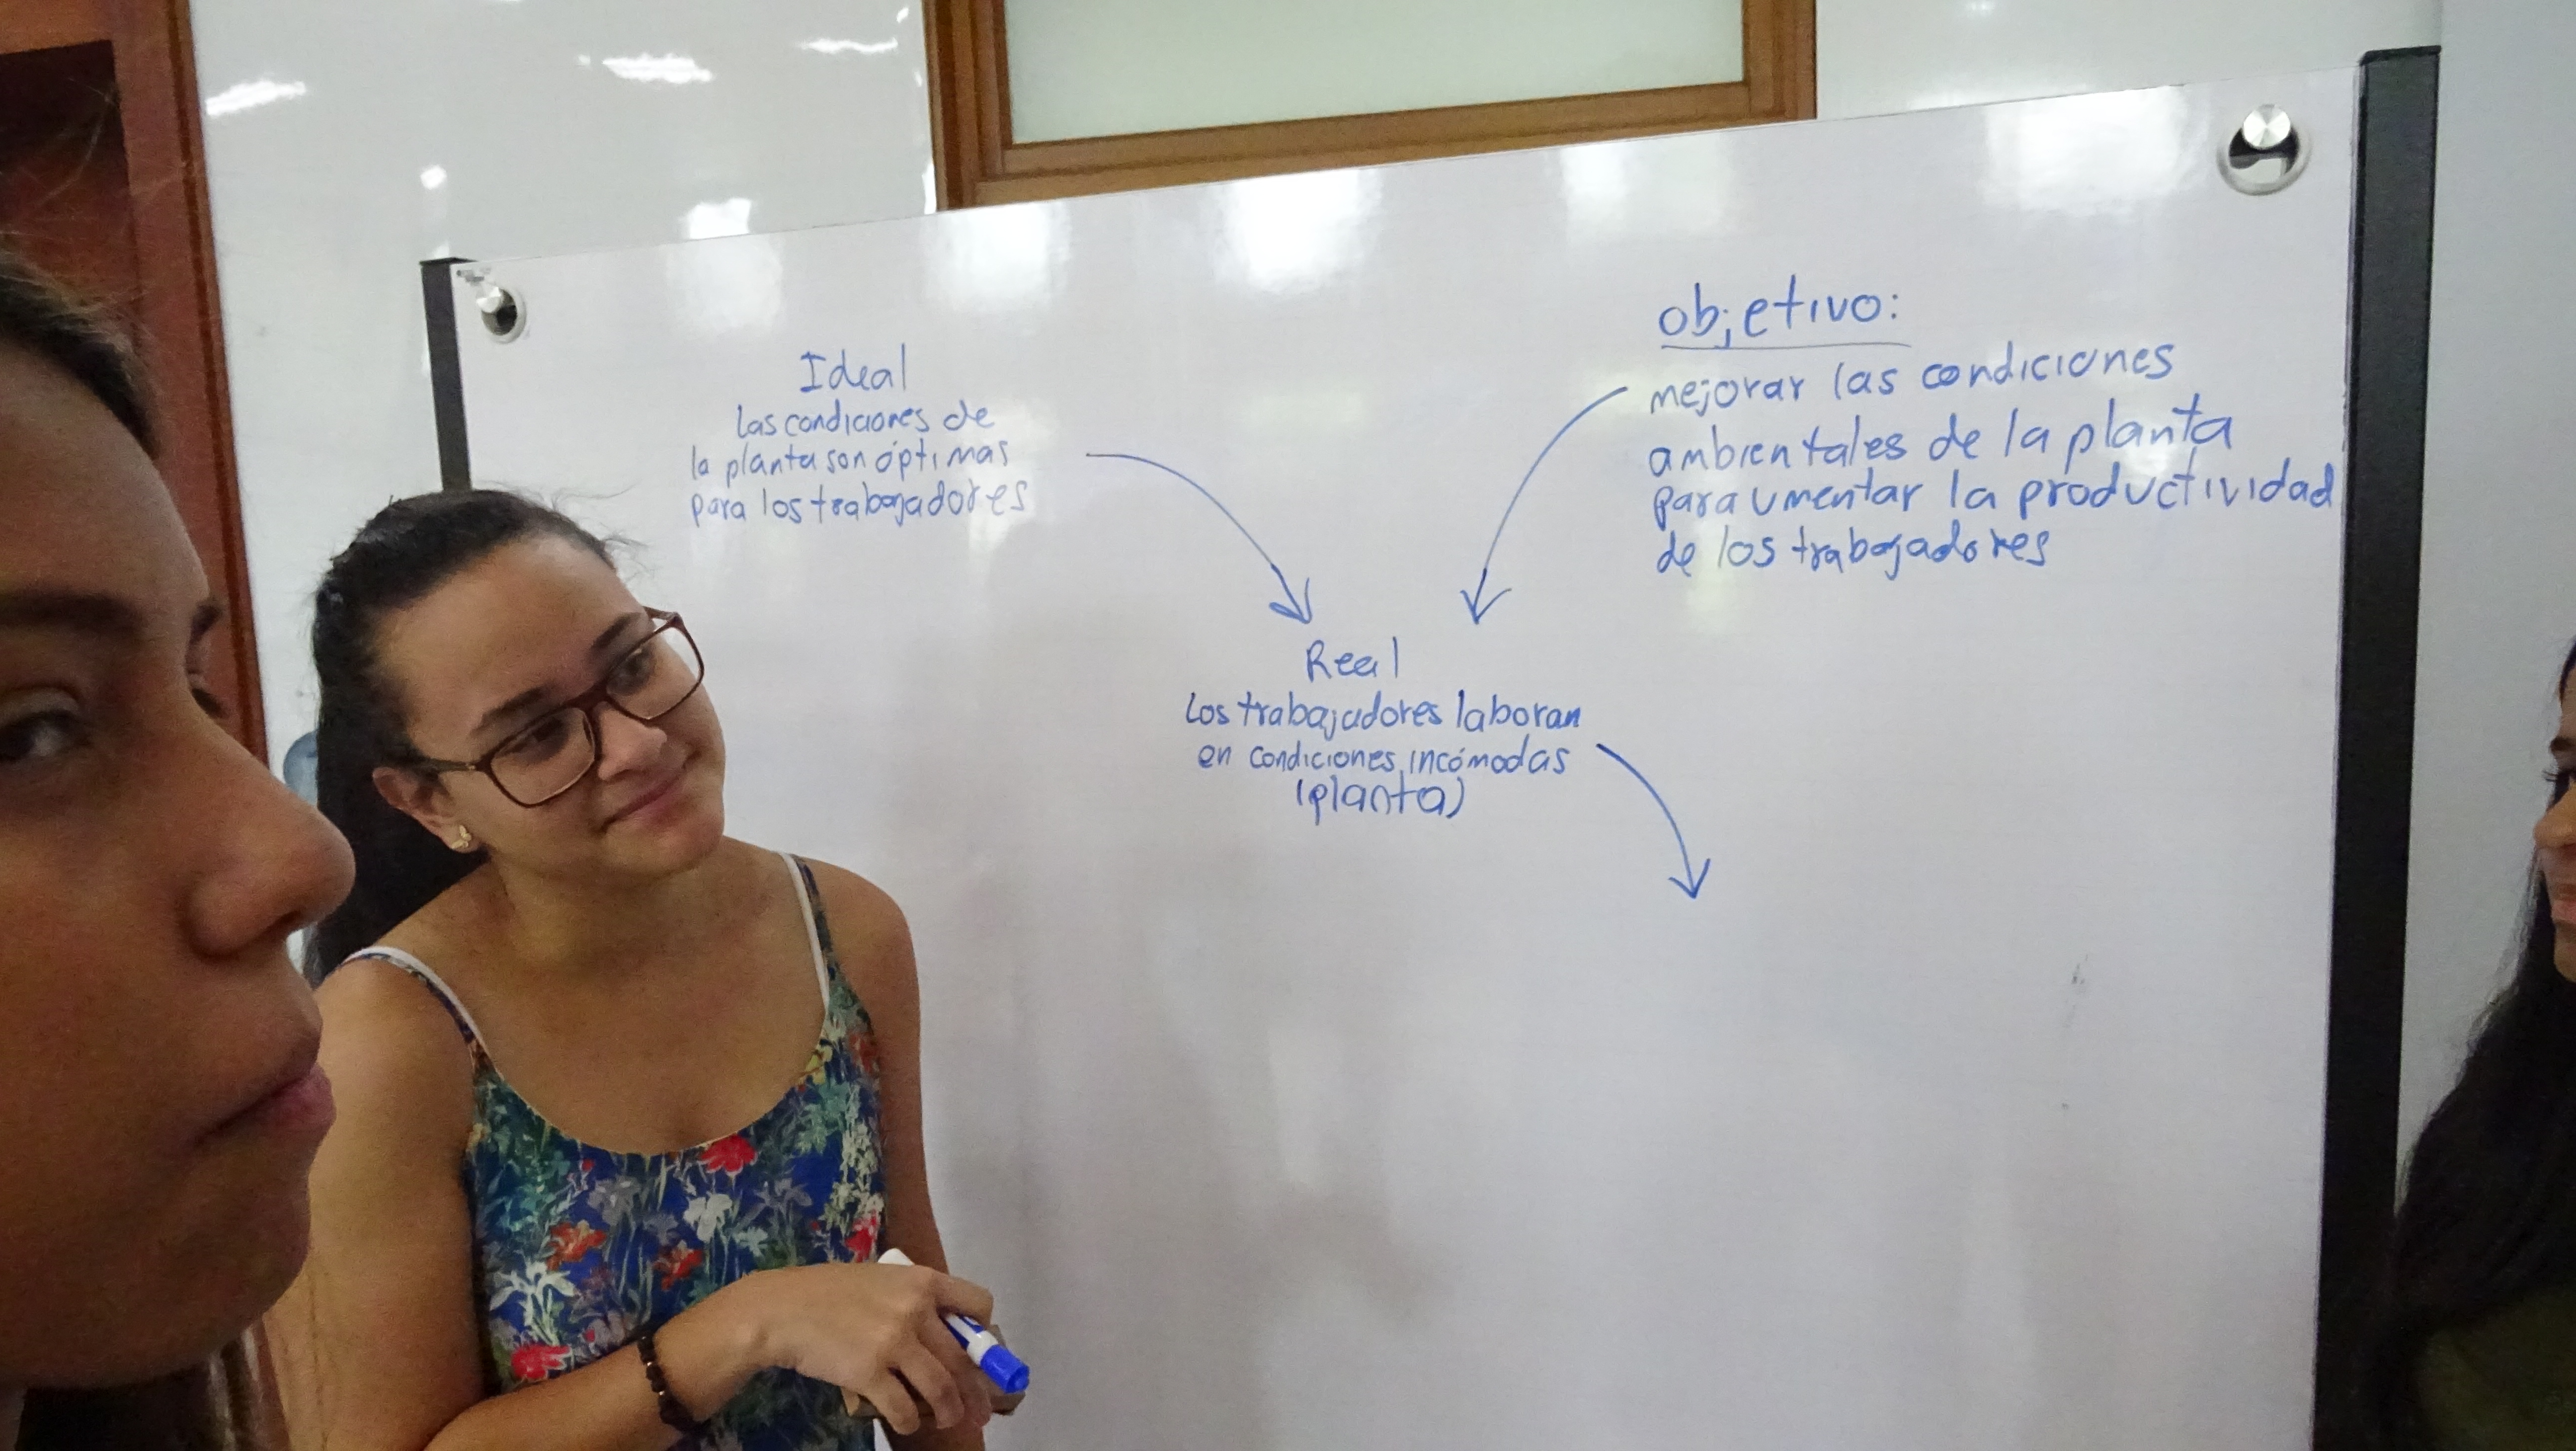 Ideal
Las condiciones de
la planta son óptimas
para los trabajadores
objetivo:
mejorar las condiciones
ambientales de la planta
para umentar la productividad
de los trabajadores
Real
Los trabajadores laboran
en condiciones incómodas
(planta)